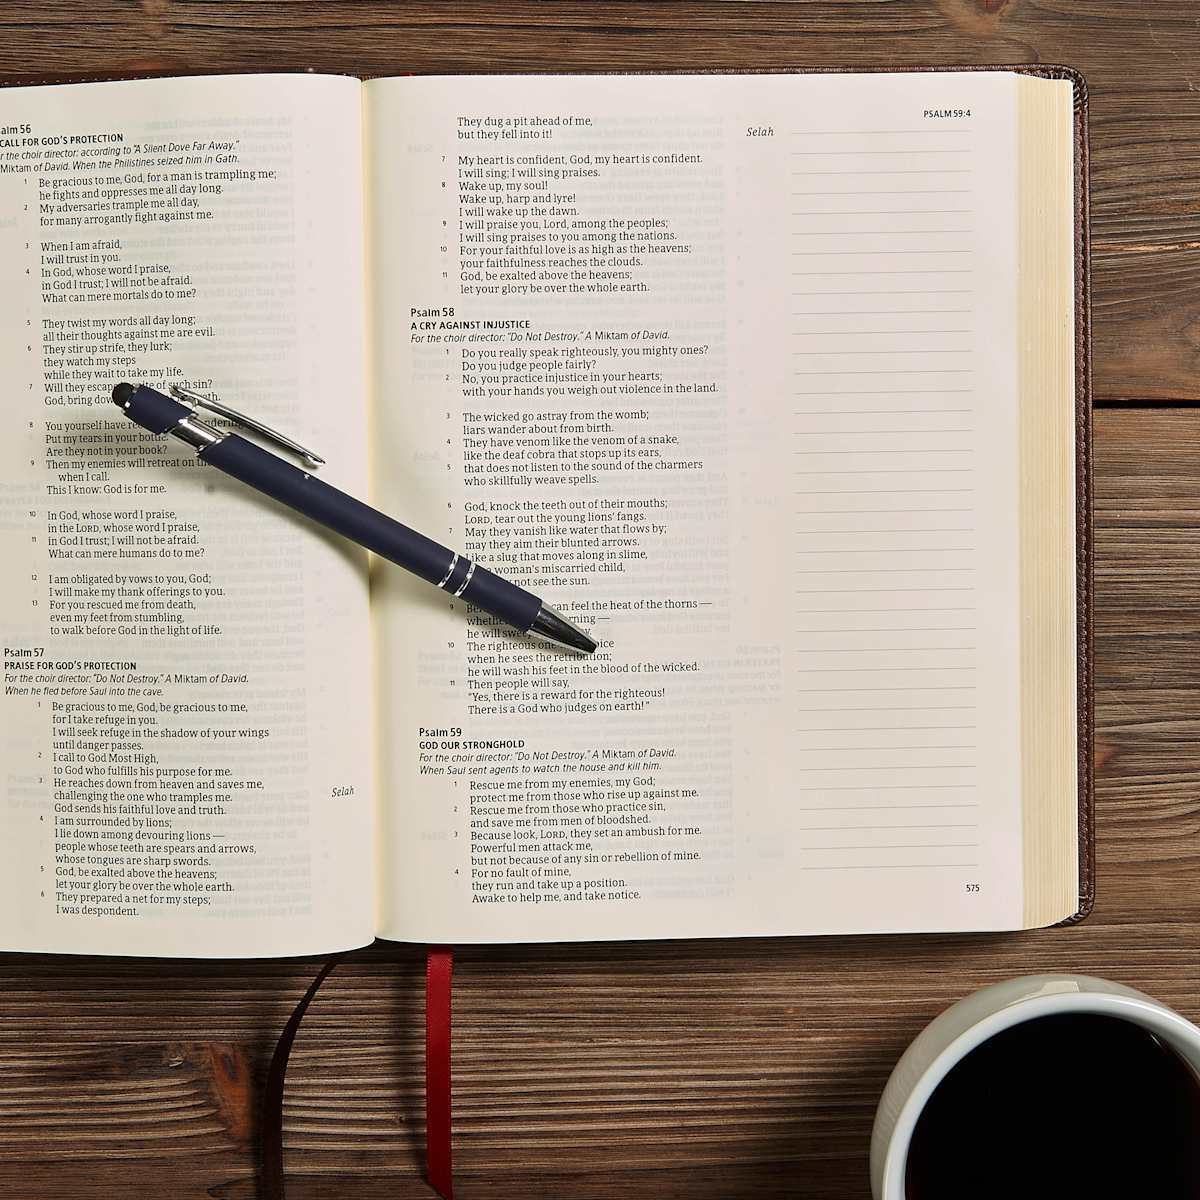 Psalm 56
CALL FOR GOD'S PROTECTION
the choir director: according to "A Silent Dove Far Away."
Miktam of David. When the Philistines seized him in Gath.
1 Be gracious to me, God, for a man is trampling me;
he fights and oppresses me all day long.
2 My adversaries trample me all day,
for many arrogantly fight against me.
3 When I am afraid,
I will trust in you.
4 In God, whose word I praise,
in God I trust; I will not be afraid.
What can mere mortals do to me?
5 They twist my words all day long;
all their thoughts against me are evil.
6 They stir up strife, they lurk;
they watch my steps
while they wait to take my life.
7 Will they escape of such sin?
God, bring
8 You yourself have
Put my tears in your bottle.
Are they not in your book?
9 Then my enemies will retreat on
when I call.
This I know: God is for me.
10 In God, whose word I praise,
in the LORD, whose word I praise,
11 in God I trust; I will not be afraid.
What can mere humans do to me?
12 I am obligated by vows to you, God;
I will make my thank offerings to you.
13 For you rescued me from death,
even my feet from stumbling,
to walk before God in the light of life.
Psalm 57
PRAISE FOR GOD'S PROTECTION
For the choir director: "Do Not Destroy." A Miktam of David.
When he fled before Saul into the cave.
1 Be gracious to me, God, be gracious to me,
for I take refuge in you.
I will seek refuge in the shadow of your wings
until danger passes.
2 I call to God Most High,
to God who fulfills his purpose for me.
3 He reaches down from heaven and saves me,
challenging the one who tramples me. Selah
God sends his faithful love and truth.
4 I am surrounded by lions;
I lie down among devouring lions —
people whose teeth are spears and arrows,
whose tongues are sharp swords.
5 God, be exalted above the heavens;
let your glory be over the whole earth.
6 They prepared a net for my steps;
I was despondent.
PSALM 59:4
They dug a pit ahead of me,
but they fell into it! Selah
7 My heart is confident, God, my heart is confident.
I will sing; I will sing praises.
8 Wake up, my soul!
Wake up, harp and lyre!
I will wake up the dawn.
9 I will praise you, Lord, among the peoples;
I will sing praises to you among the nations.
10 For your faithful love is as high as the heavens;
your faithfulness reaches the clouds.
11 God, be exalted above the heavens;
let your glory be over the whole earth.
Psalm 58
A CRY AGAINST INJUSTICE
For the choir director: "Do Not Destroy." A Miktam of David.
1 Do you really speak righteously, you mighty ones?
Do you judge people fairly?
2 No, you practice injustice in your hearts;
with your hands you weigh out violence in the land.
3 The wicked go astray from the womb;
liars wander about from birth.
4 They have venom like the venom of a snake,
like the deaf cobra that stops up its ears,
5 that does not listen to the sound of the charmers
who skillfully weave spells.
6 God, knock the teeth out of their mouths;
LORD, tear out the young lions' fangs.
7 May they vanish like water that flows by;
may they aim their blunted arrows.
Like a slug that moves along in slime,
a woman's miscarried child,
not see the sun.
9 can feel the heat of the thorns —
he will
10 The righteous one
when he sees the retribution;
he will wash his feet in the blood of the wicked.
11 Then people will say,
"Yes, there is a reward for the righteous!
There is a God who judges on earth!"
Psalm 59
GOD OUR STRONGHOLD
For the choir director: "Do Not Destroy." A Miktam of David.
When Saul sent agents to watch the house and kill him.
1 Rescue me from my enemies, my God;
protect me from those who rise up against me.
2 Rescue me from those who practice sin,
and save me from men of bloodshed.
3 Because look, LORD, they set an ambush for me.
Powerful men attack me,
but not because of any sin or rebellion of mine.
4 For no fault of mine,
they run and take up a position.
Awake to help me, and take notice.
575